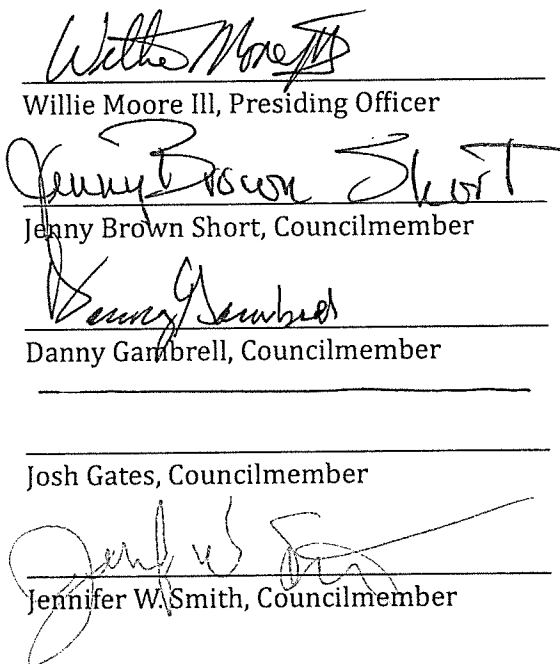 Willie Moore III
Willie Moore Ill, Presiding Officer
Jenny Brown Short
Jenny Brown Short, Councilmember
Danny Gambrell
Danny Gambrell, Councilmember
Josh Gates, Councilmember
Jennifer W. Smith, Councilmember